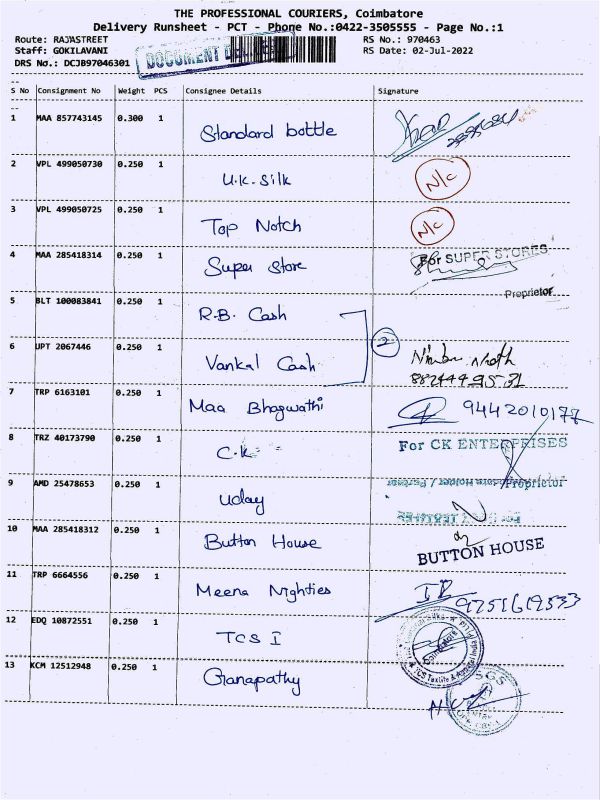 THE PROFESSIONAL COURIERS, Coimbatore
Delivery Runsheet - PCT - Phone No.:0422-3505555 - Page No.:1
Route: RAJASTREET RS No.: 970463
Staff: GOKILAVANI RS Date: 02-Jul-2022
DRS No.: DCJB97046301 DOCUMENT
S No Consignment No Weight PCS Consignee Details Signature
1 MAA 857743145 0.300 1 Standard bottle
2 VPL 499050730 0.250 1 U.K. Silk N/C
3 VPL 499050725 0.250 1 Top Notch N/C
4 MAA 285418314 0.250 1 Super Store For SUPER STORES
Proprietor
5 BLT 100083841 0.250 1 R.B. Cash
2
6 UPT 2067446 0.250 1 Vankal Cash
7 TRP 6163101 0.250 1 Maa Bhagwathi 9442010177
8 TRZ 40173790 0.250 1 C.K For CK ENTERPRISES
Proprietor
9 AMD 25478653 0.250 1 Uday
10 MAA 285418312 0.250 1 Button House BUTTON HOUSE
11 TRP 6664556 0.250 1 Meena Nighties 9751619533
12 EDQ 10872551 0.250 1 TCS I
Coimbatore
13 KCM 12512948 0.250 1 Ganapathy SGS